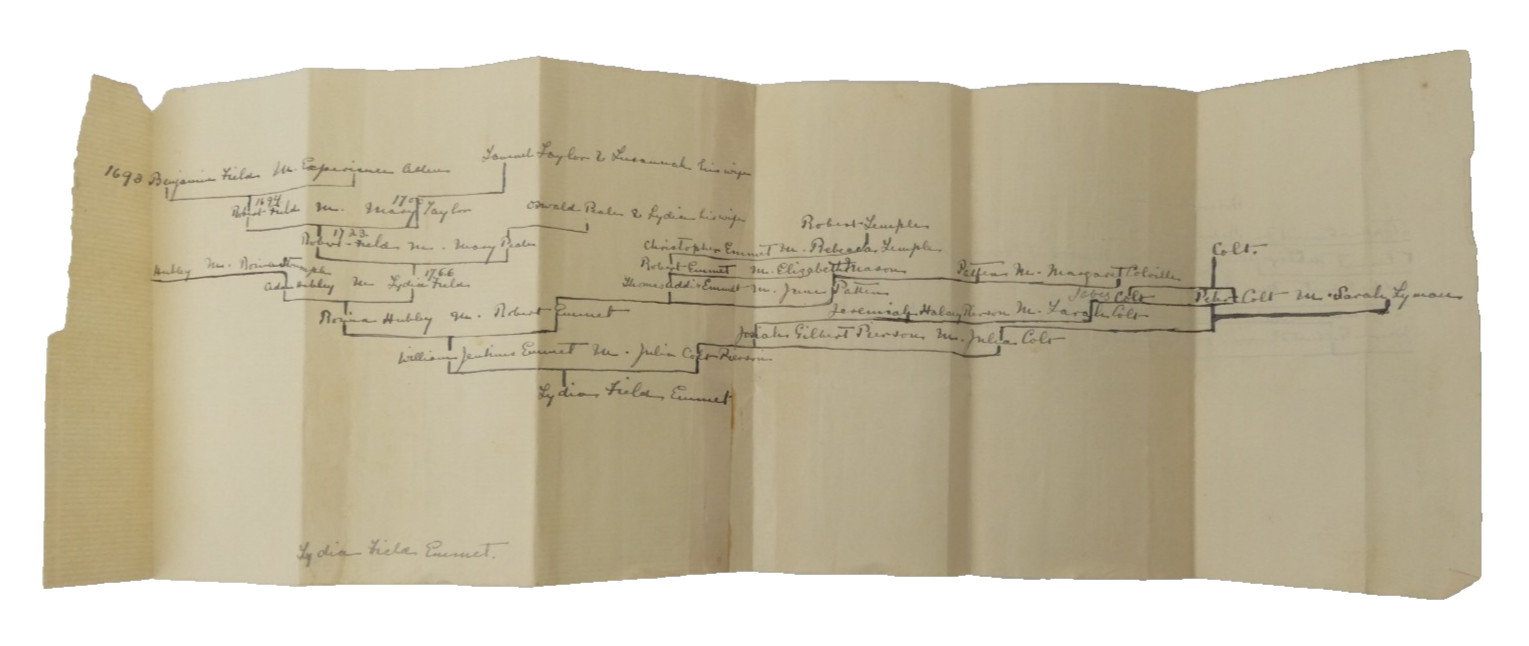 Samuel Taylor & Susannah his wife
1693 Benjamin Field M. Experience Allen
1694 170
Robert Field M. Mary Taylor
Oswald Peale & Lydia his wife
1723
Robert Field M. Mary Peale
Hubley M. Rosina Stumple
1766
Adam Hubley M Lydia Field
Rosina Hubley M. Robert Emmet
William Jenkins Emmet M. Julia Colt Pierson
Lydia Field Emmet
Robert Temple
Christopher Emmet M. Rebecca Temple
Robert Emmet M. Elizabeth Mason
Thomas Addis Emmet M. Jane Patten
Patten M. Margaret Colville
Colt.
Jabez Colt
Peter Colt M. Sarah Lyman
Jeremiah Halsey Pierson M. Sarah Colt
Josiah Gilbert Pierson M. Julia Colt
Lydia Field Emmet.